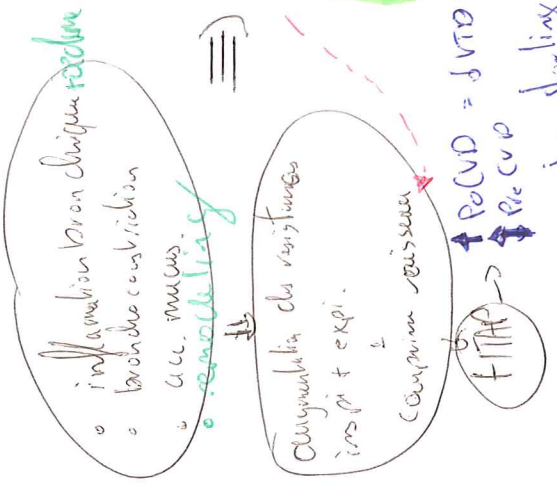 ◦ inflammation bronchique
◦ bronchoconstriction
◦ acc. mucus.
◦ remodeling
⇓
augmentation des résistances
inspi + expi.
comprime vaisseau
HTAP →
↑ PoCVD = ↓ VTD
PreCVD